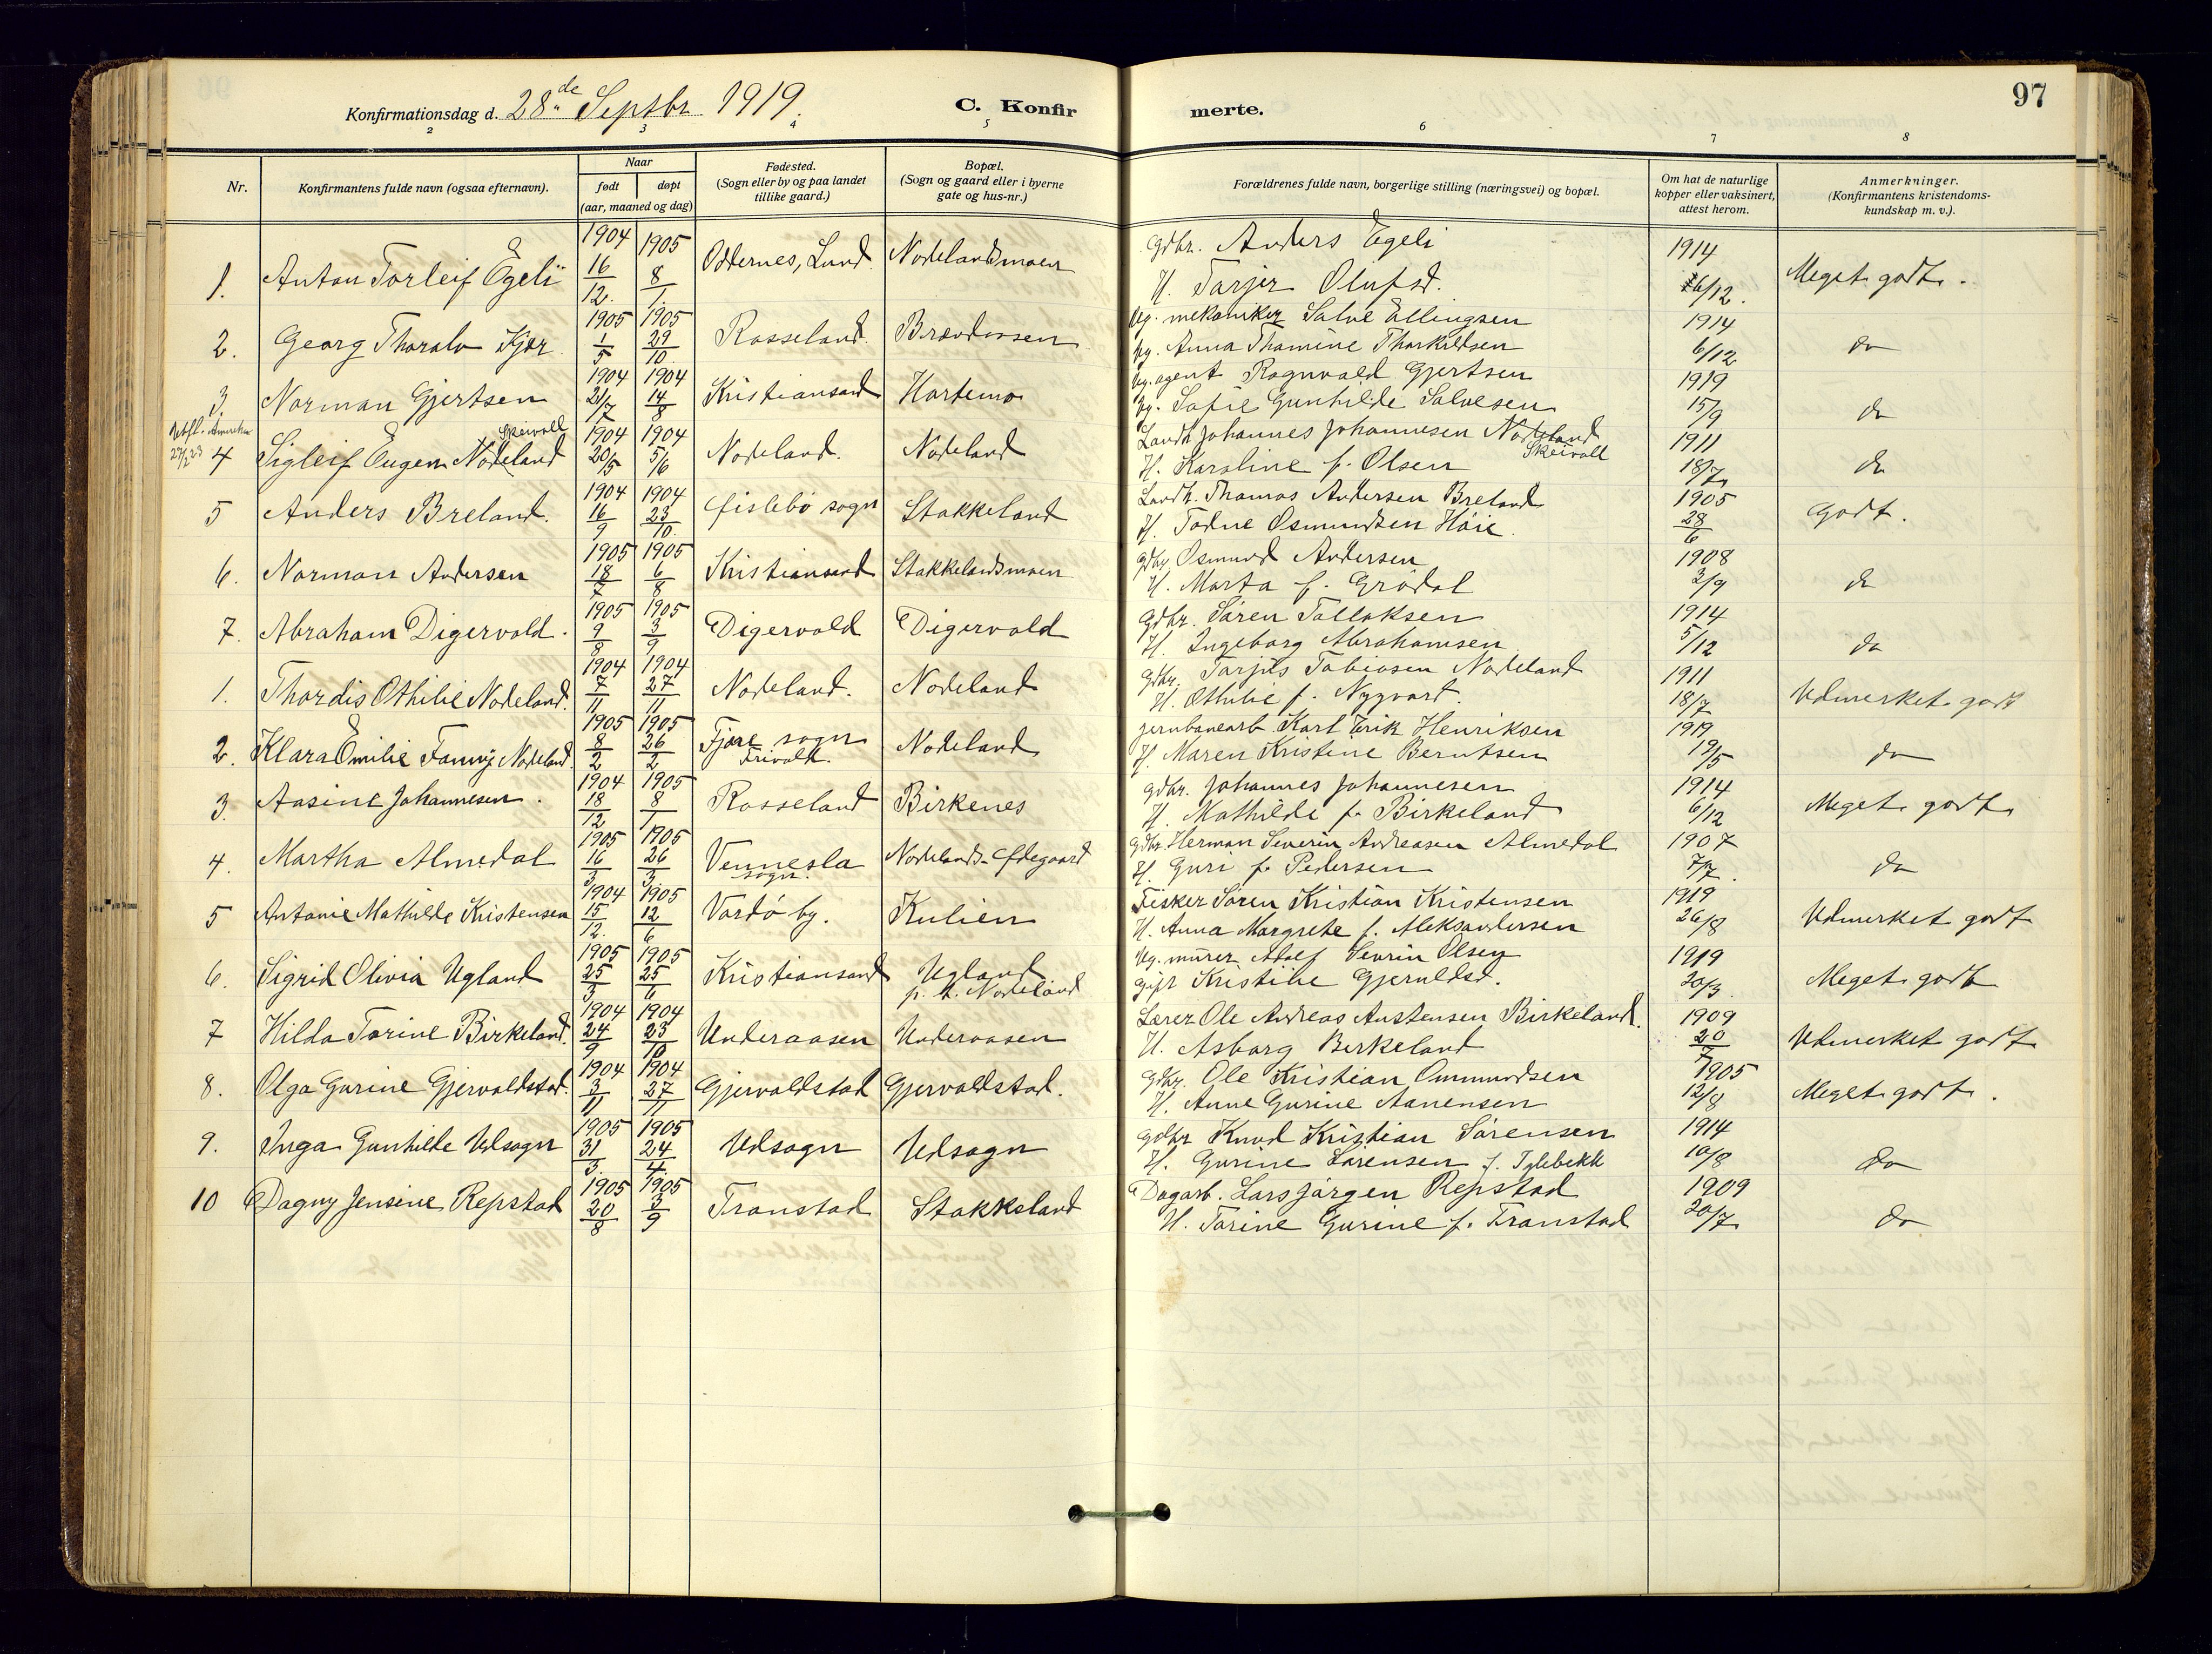 97
Konfirmationsdag d. 28de Septbr. 1919.
C. Konfirmerte.
2 3 4 5 6 7 8
Nr.
Konfirmantens fulde navn (ogsaa efternavn).
Naar
født døpt
(aar, maaned og dag)
Fødested.
(Sogn eller by og paa landet
tillike gaard.)
Bopæl.
(Sogn og gaard eller i byerne
gate og hus-nr.)
Forældrenes fulde navn, borgerlige stilling (næringsvei) og bopæl.
Om hat de naturlige
kopper eller vaksinert,
attest herom.
Anmerkninger.
(Konfirmantens kristendoms-
kundskap m. v.).
1. Anton Torleif Egeli 1904 16/12. 1905 8/1. Oddernes, Lund. Nodelandsmoen gdbr. Anders Egeli 1914
H. Tarjer Olufsd. 6/12. Meget godt.
2. Georg Thoralv Kjær 1905 1/5 1905 29/10. Rosseland. Brændåsen Ug. mekaniker Salve Ellingsen 1914
pg. Anna Thomine Thorkildsen 6/12 do
3. Norman Gjertsen 1904 21/7 1904 14/8 Kristianssand Hortemo Ug. agent Ragnvald Gjertsen 1919
pg. Sofie Gunhilde Salvesen 15/9 do
27/2 23
4 Sigleif Eugen Nodeland Skeivoll 1904 20/5 1904 5/6 Nodeland. Nodeland Landh. Johannes Johannesen Nodeland Skeivoll 1911
H. Karoline f. Olsen 18/7 do
5 Anders Breland. 1904 16/9 1904 23/10. Øislebø sogn Stokkeland Landh. Thomas Andersen Breland 1905
H. Todne Osmundsen Høie. 28/6 Godt.
6. Norman Andersen 1905 18/7 1905 6/8 Kristianssand Stokkelandsmoen gdbr. Osmund Andersen 1908
H. Marta f. Grødal 2/9 do
7. Abraham Digervold. 1905 9/8 1905 3/9 Digervold Digervold gdbr. Søren Tallaksen 1914
H. Ingeborg Abrahamsen 5/12 do
1. Thordis Othilie Nodeland. 1904 7/11 1904 27/11 Nodeland. Nodeland gdbr. Tarjus Tobiasen Nodeland 1911
H. Othilie f. Nygvard. 18/7 Udmerket godt
2. Klara Emilie Fanny Nodeland. 1905 8/2 1905 26/2 Fjære sogn Nodeland jernbanearb. Karl Erik Henriksen 1919
H. Maren Kristine Berntsen 19/5 do
3. Aasine Johannesen. 1904 18/12 1905 8/1 Rosseland Birkenes gdbr. Johannes Johannesen 1914
H. Mathilde f. Birkeland 6/12 Meget godt
4. Martha Almedal 1905 16/3 1905 26/3. Vennesla sogn. Nodelands-Ødegaard gdbr. Herman Severin Andreasen Almedal 1907
H. Guri f. Pedersen 7/7. do
5 Antonie Mathilde Kristensen 1904 15/12. 1905 12/6 Vardø by. Kulien Fisker Søren Kristian Kristensen 1919
H. Anna Margrete f. Aleksandersen 26/8 Udmerket godt
6. Sigrid Olivia Ugland 1905 25/3 1905 25/6 Kristianssand Ugland p. t. Nodeland Ug. murer Adolf Sevrin Olsen 1919
gift Kristine Gjeruldsd. 20/3 Meget godt
7 Hilda Torine Birkeland. 1904 24/9 1904 23/10 Underaasen Underaasen Lærer Ole Andreas Austensen Birkeland. 1909
H. Asborg Birkeland 20/7 Udmerket godt
8. Olga Gurine Gjervoldstad. 1904 3/11 1904 27/11 Gjervoldstad Gjervoldstad. gdbr. Ole Kristian Ommundsen 1905
H. Anne Gurine Aanensen 12/8 Meget godt.
9. Inga Gunhilde Udsogn 1905 31/3. 1905 24/4. Udsogn Udsogn gdbr Knud Kristian Sørensen 1914
H. Gurine Sørensen f. Iglebekk 10/8 do
10 Dagny Jensine Repstad 1905 20/8 1905 3/9 Tronstad Stokkeland Dagarb. Lars Jørgen Repstad 1909
H. Torine Gurine f. Tronstad 20/7 do